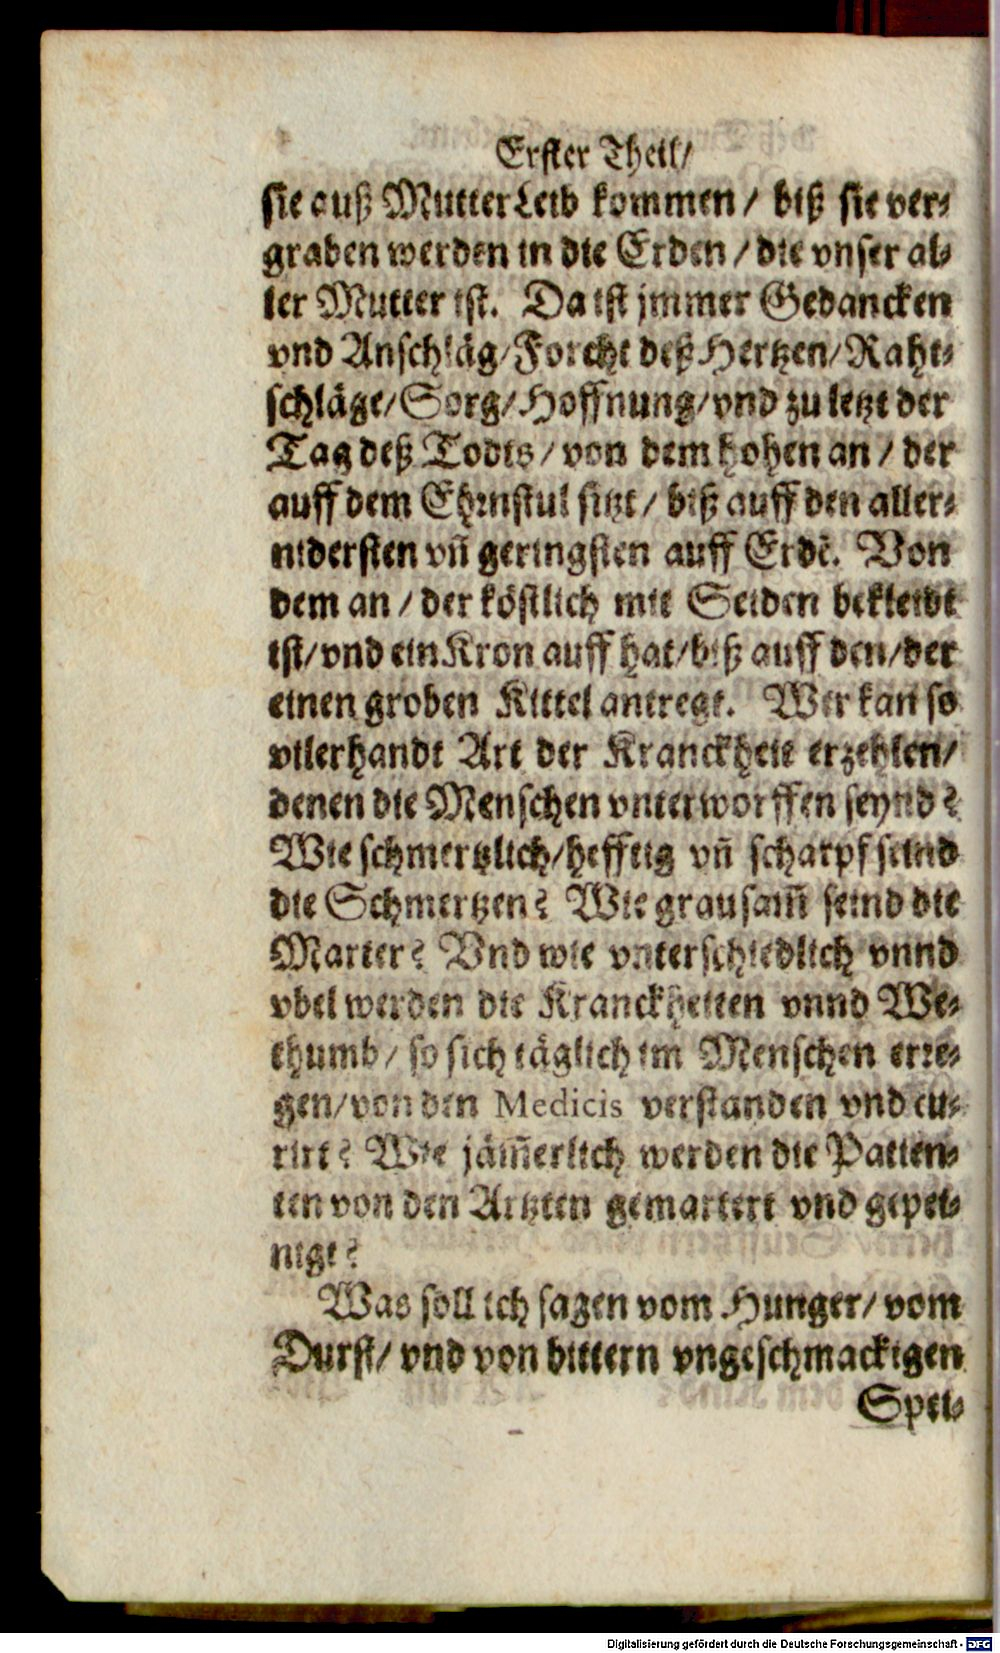 Erster Theil/
sie auß Mutter Leib kommen / biß sie ver-
graben werden in die Erden / die vnser al-
ler Mutter ist. Da ist jmmer Gedancken
vnd Anschläg/Forcht deß Hertzen/Raht-
schläge/Sorg/Hoffnung/vnd zu letzt der
Tag deß Todts / von dem hohen an / der
auff dem Ehrnstul sitzt / biß auff den aller-
nidersten vñ geringsten auff Erdẽ. Von
dem an / der köstlich mit Seiden bekleidt
ist/vnd ein Kron auff hat/biß auff den/der
einen groben Kittel antregt. Wer kan so
vilerhandt Art der Kranckheit erzehlen/
denen die Menschen vnterworffen seynd?
Wie schmertzlich/hefftig vñ scharpf seind
die Schmertzen? Wie grausam̃ seind die
Marter? Vnd wie vnterschiedlich vnnd
vbel werden die Kranckheiten vnnd We-
thumb / so sich täglich im Menschen erre-
gen/von den Medicis verstanden vnd cu-
rirt? Wie jäm̃erlich werden die Patien-
ten von den Artzten gemartert vnd gepei-
nigt?
Was soll ich sagen vom Hunger/ vom
Durst/ vnd von bittern vngeschmackigen
Spei-
Digitalisierung gefördert durch die Deutsche Forschungsgemeinschaft - DFG